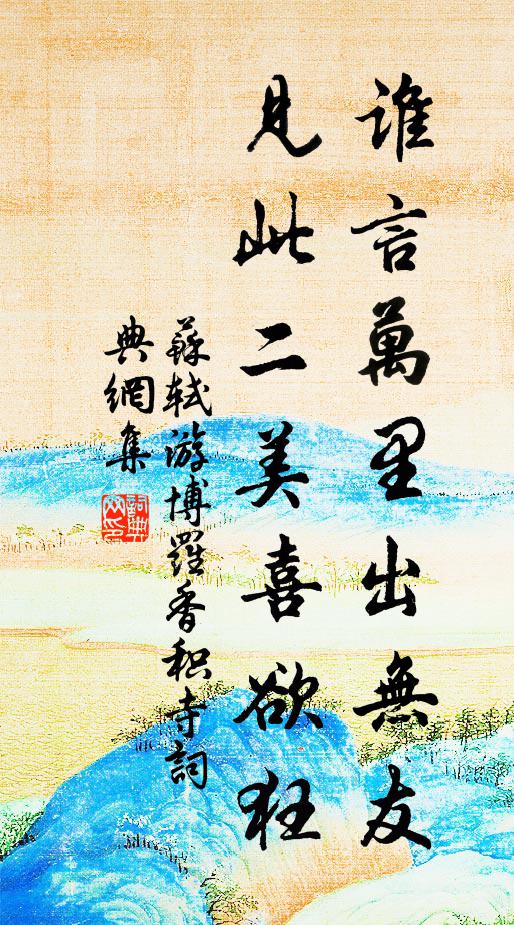 誰言萬里出無友
見此二美喜欲狂
蘇軾游博羅香积寺詞
典網集